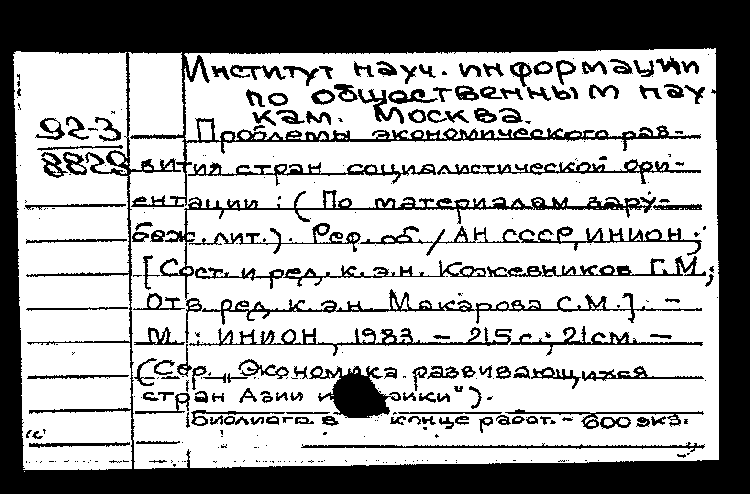 Институт науч. информации
по общественным нау-
кам. Москва.
92-3
8829
Проблемы экономического раз-
вития стран социалистической ори-
ентации : (По материалам зару-
беж. лит.). Реф. сб. / АН СССР, ИНИОН ;
[Сост. и ред. к.э.н. Кожевников Г.М.;
Отв. ред. к.э.н. Макарова С.М.]. -
М. : ИНИОН, 1983. - 215 с.; 21 см. -
(Сер. „Экономика развивающихся
стран Азии и
Библиогр. в конце работ. - 600 экз.